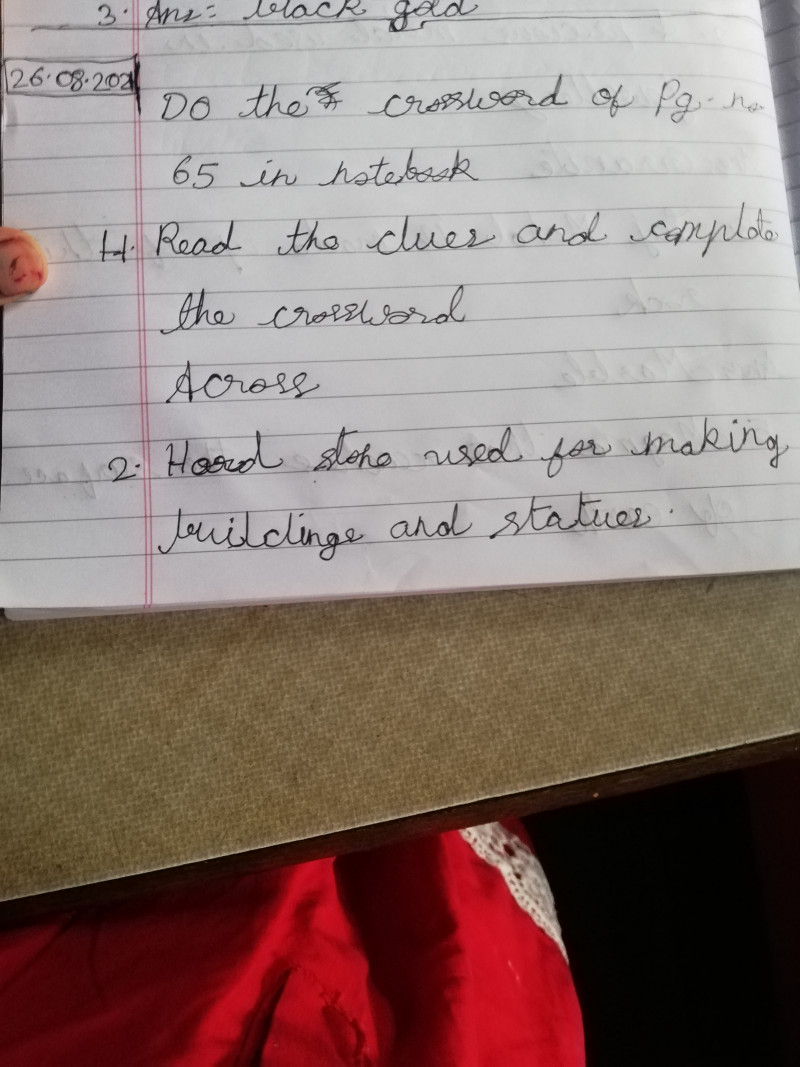 3. Ans= black gold
26.08.202
Do the crossword of Pg. no
65 in notebook
H. Read the clues and complete
the crossword
Across
2. Hard stone used for making
buildings and statues.